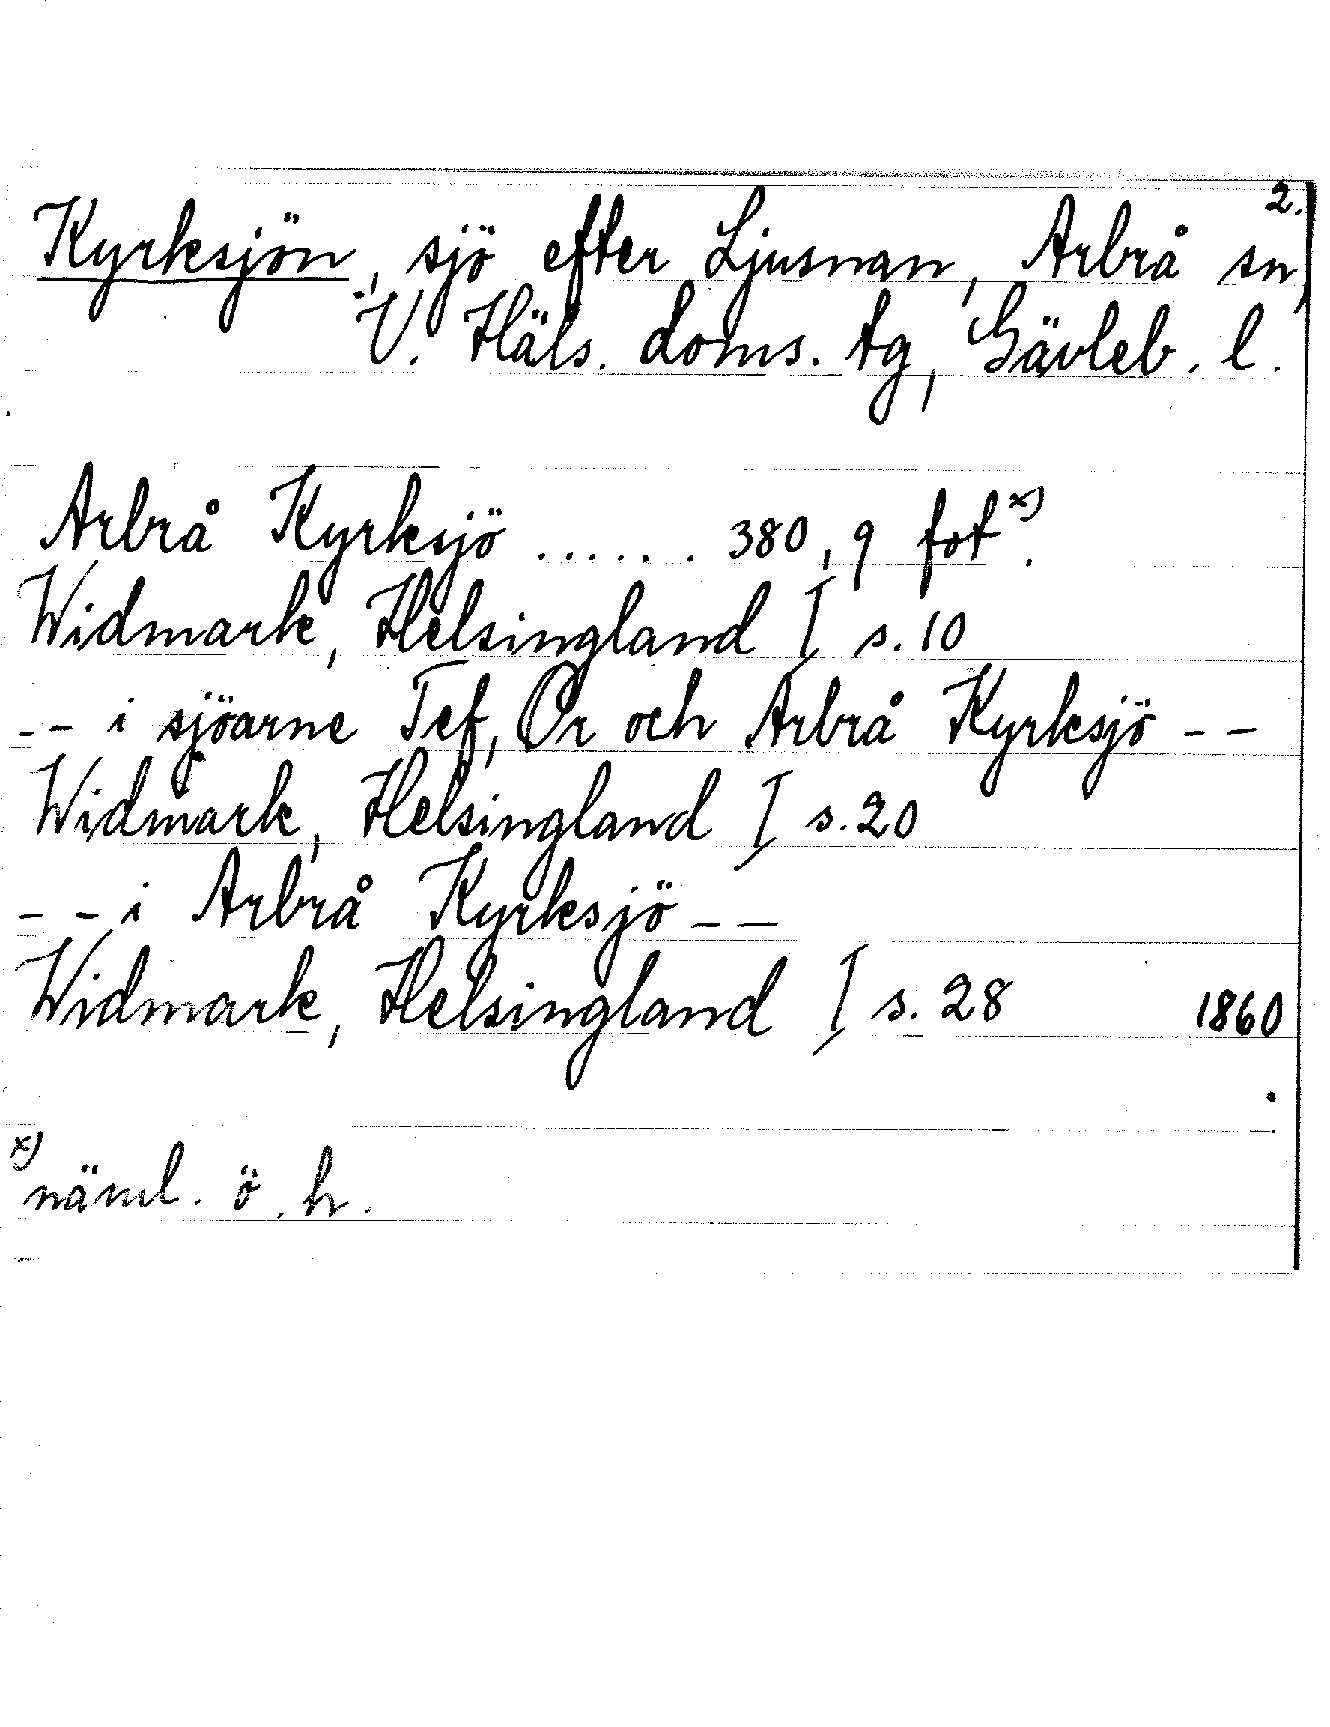 2.
Kyrksjön, sjö efter Ljusnan, Arbrå sn,
V. Häls. doms. tg, Gävleb. l.
Arbrå Kyrksjö ...... 380,9 fot x).
Widmark, Helsingland I s. 10
-- i sjöarne Tef, Or och Arbrå Kyrksjö --
Widmark, Helsingland I s. 20
-- i Arbrå Kyrksjö --
Widmark, Helsingland I s. 28 1860
x) näml. ö. h.